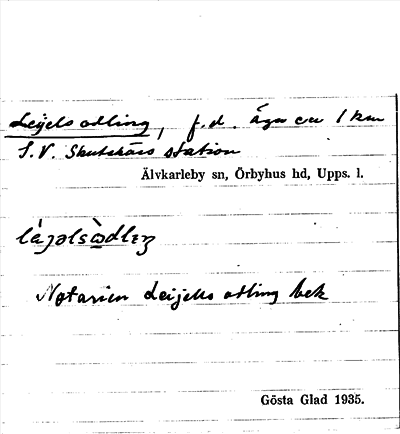 Leijels odling, f.d. äga ca 1 km
S.V. Skutskärs station
Älvkarleby sn, Örbyhus hd, Upps. l.
Notarien Leijells odling bek
Gösta Glad 1935.